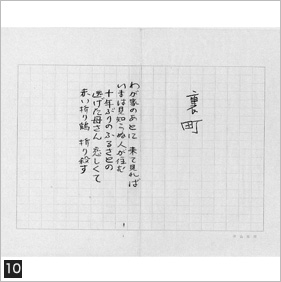 裏町
わが家のあとに 来て見れば
いまは見知らぬ人が住む
十年ぶりのふるさとの
逃げた母さん 恋しくて
赤い折り鶴 折り殺す
10